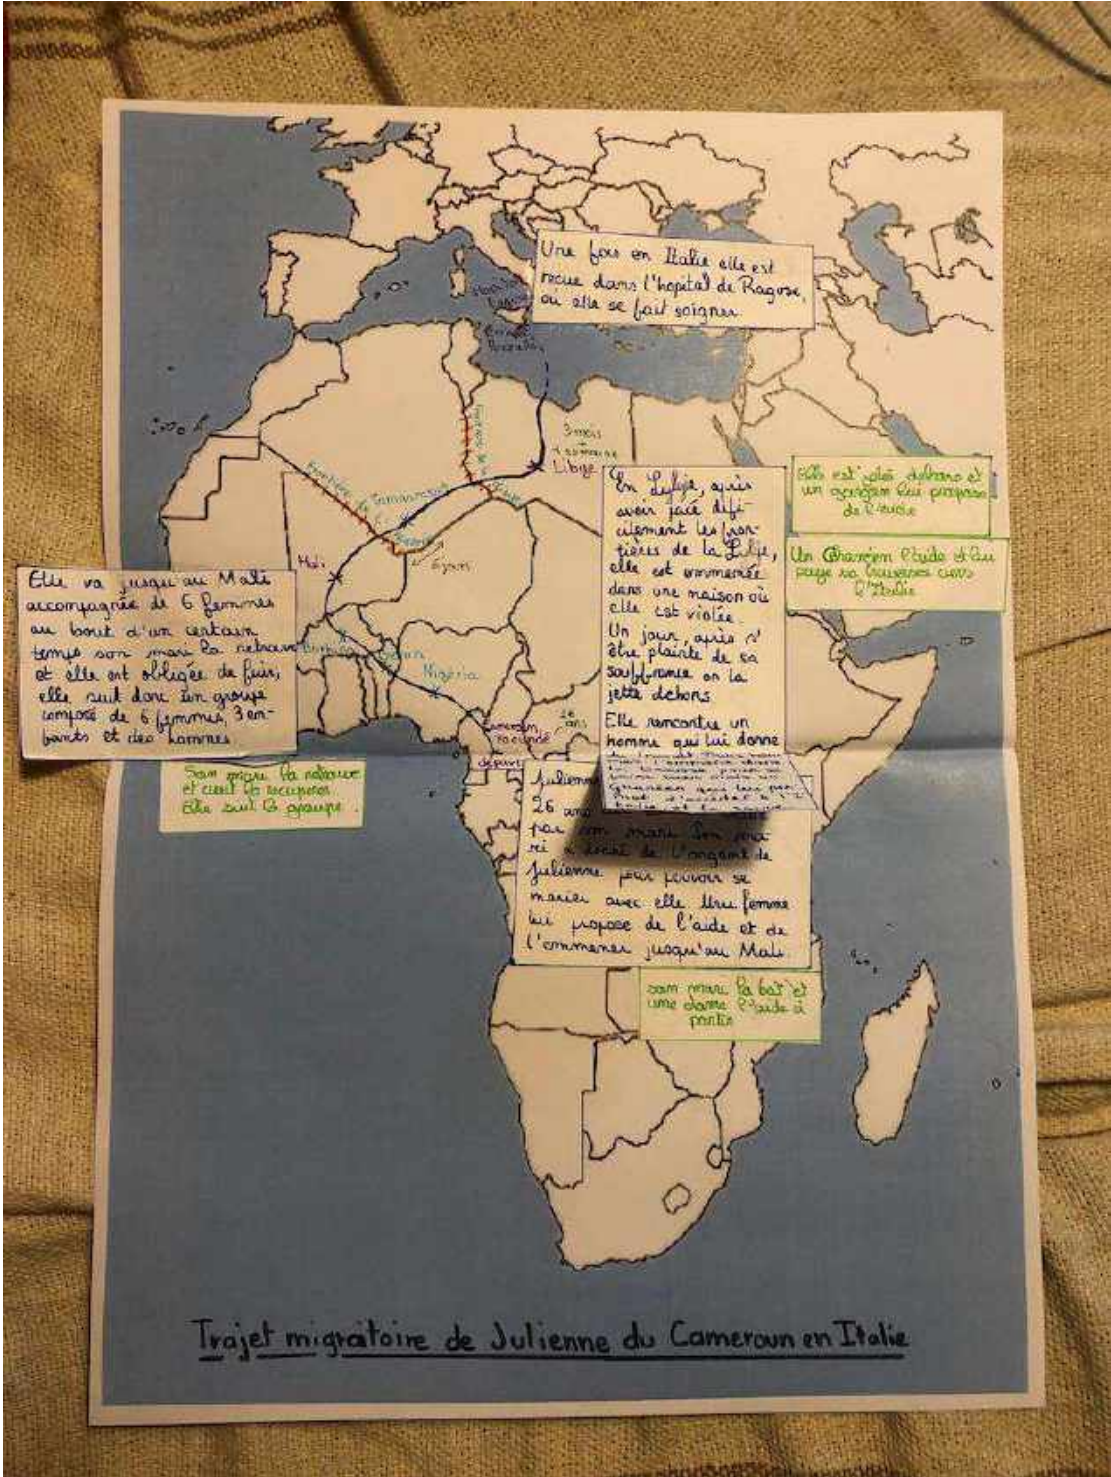 Une fois en Italie elle est
recue dans l'hopital de Ragose,
ou elle se fait soigner
3 mois
1 semaine
Libye
En Lybje, après
avoir passé difi-
cilement les fron-
tières de la
elle est emmenée
dans une maison où
elle est violée.
Un jour, après s'
être plainte de sa
souffrance on la
jette dehors
Elle rencontre un
homme qui lui donne
Elle est jetée dehors et
un garçon lui propose
de l'aide
Un Ghanéen l'aide et lui
paye sa traversée vers
l'Italie
Frontière de Tamanrasset
Mali
6 jours
Elle va jusqu'au Mali
accompagnée de 6 femmes
au bout d'un certain
temps son mari la retrouve
et elle est obligée de fuir,
elle suit donc un groupe
composé de 6 femmes, 3 en-
fants et des hommes
Son mari la retrouve
et vient la récupérer.
Elle suit le groupe.
Burkina
Bénin
Nigéria
Cameroun
Yaoundé
départ
26
ans
Julienne
26 ans
par son mari Son ma-
ri a de l'argent de
Julienne pour pouvoir se
marier avec elle Une femme
lui propose de l'aide et de
l'emmener jusqu'au Mali.
son mari la bat et
une dame l'aide à
partir
Trajet migratoire de Julienne du Cameroun en Italie